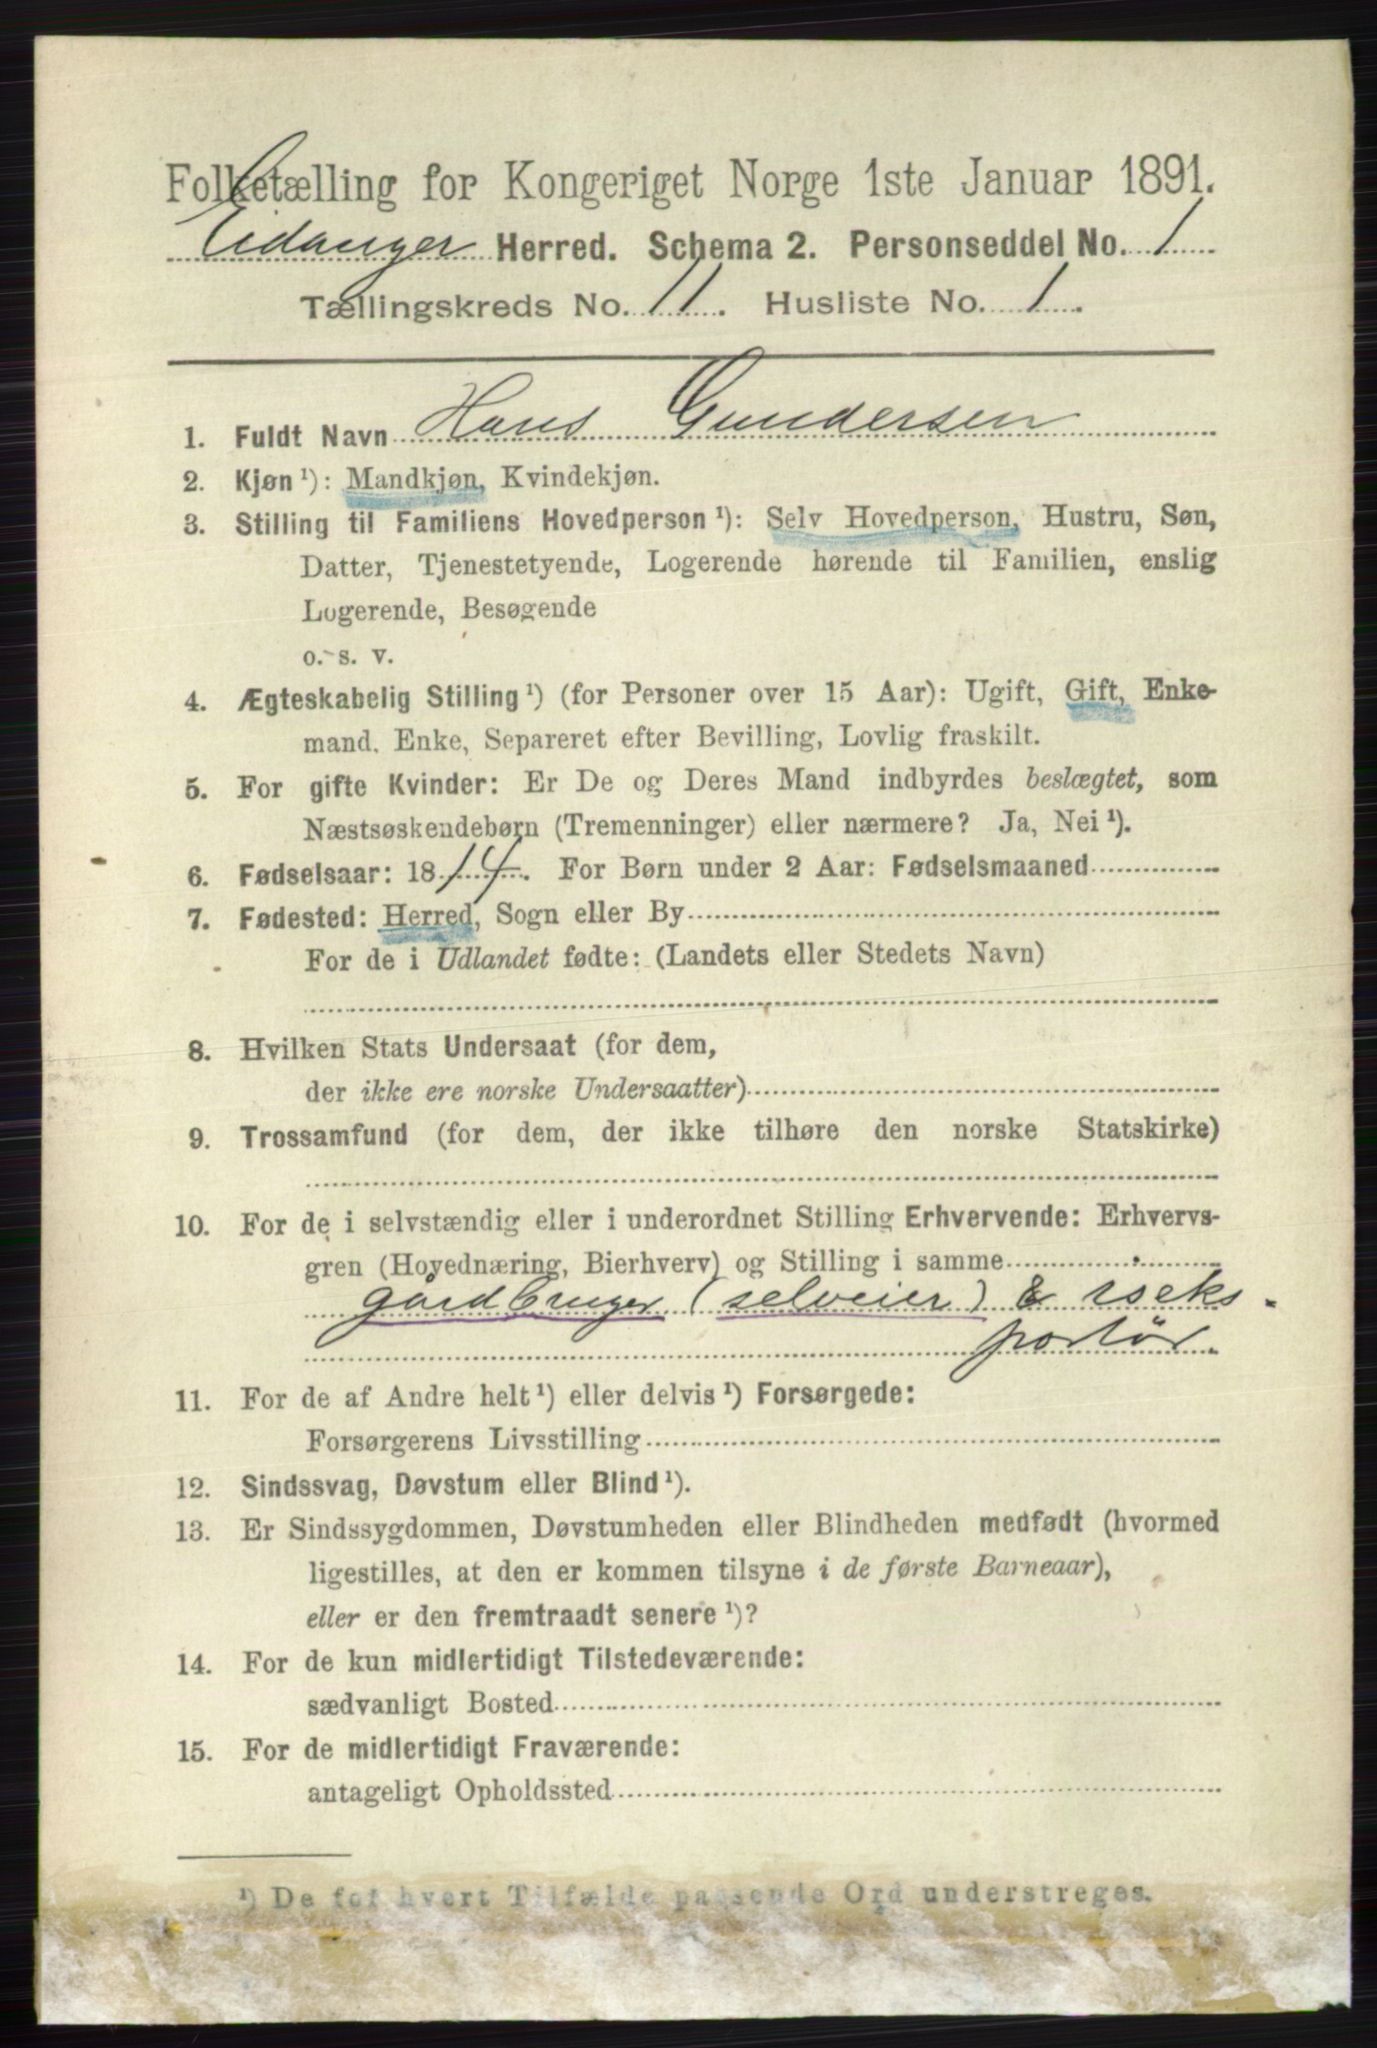 Folketælling for Kongeriget Norge 1ste Januar 1891.
Eidanger Herred. Schema 2. Personseddel No. 1
Tællingskreds No. 11. Husliste No. 1.
1. Fuldt Navn Hans Gundersen
2. Kjøn ¹): Mandkjøn, Kvindekjøn.
3. Stilling til Familiens Hovedperson ¹): Selv Hovedperson, Hustru, Søn,
Datter, Tjenestetyende, Logerende hørende til Familien, enslig
Logerende, Besøgende
o. s. v.
4. Ægteskabelig Stilling ¹) (for Personer over 15 Aar): Ugift, Gift, Enke-
mand, Enke, Separeret efter Bevilling, Lovlig fraskilt.
5. For gifte Kvinder: Er De og Deres Mand indbyrdes beslægtet, som
Næstsøskendebørn (Tremenninger) eller nærmere? Ja, Nei ¹).
6. Fødselsaar: 1814. For Børn under 2 Aar: Fødselsmaaned
7. Fødested: Herred, Sogn eller By
For de i Udlandet fødte: (Landets eller Stedets Navn)
8. Hvilken Stats Undersaat (for dem,
der ikke ere norske Undersaatter)
9. Trossamfund (for dem, der ikke tilhøre den norske Statskirke)
10. For de i selvstændig eller i underordnet Stilling Erhvervende: Erhvervs-
gren (Hovednæring, Bierhverv) og Stilling i samme
gårdbruger (selveier) &
11. For de af Andre helt ¹) eller delvis ¹) Forsørgede:
Forsørgerens Livsstilling
12. Sindssvag, Døvstum eller Blind ¹).
13. Er Sindssygdommen, Døvstumheden eller Blindheden medfødt (hvormed
ligestilles, at den er kommen tilsyne i de første Barneaar),
eller er den fremtraadt senere ¹)?
14. For de kun midlertidigt Tilstedeværende:
sædvanligt Bosted
15. For de midlertidigt Fraværende:
antageligt Opholdssted
¹) De for hvert Tilfælde passende Ord understreges.